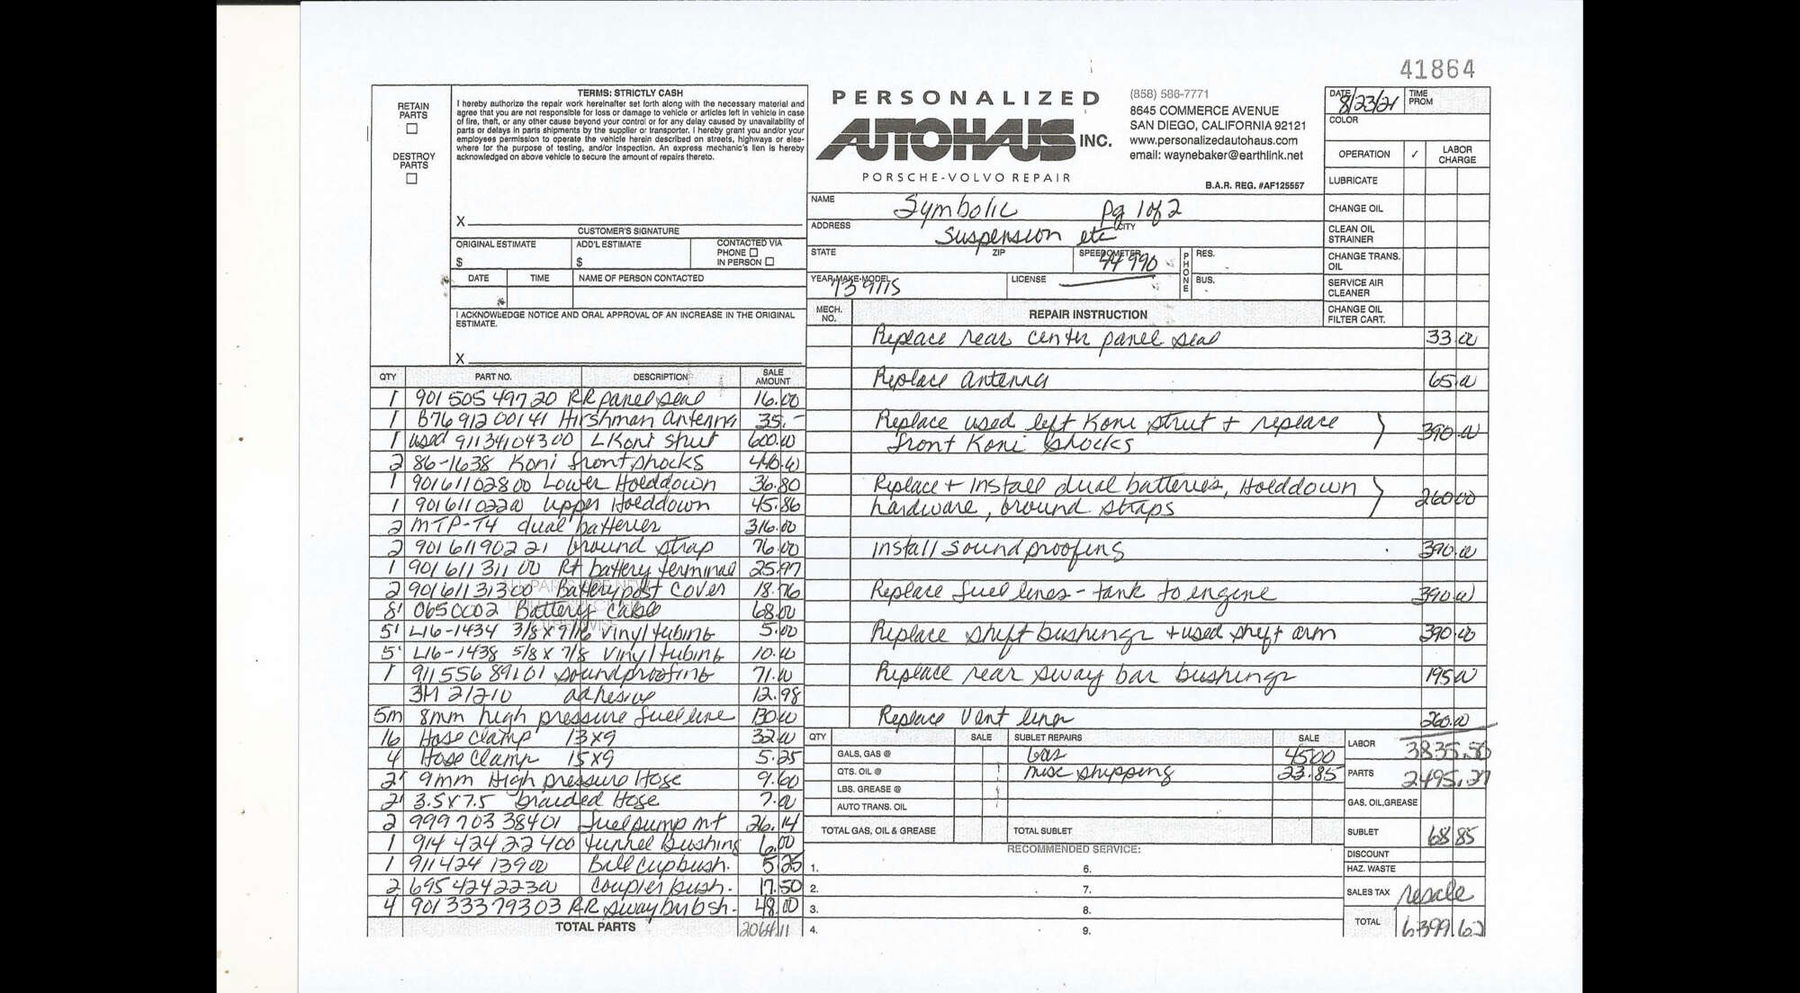 41864
RETAIN PARTS
DESTROY PARTS
TERMS: STRICTLY CASH
I hereby authorize the repair work hereinafter set forth along with the necessary material and
agree that you are not responsible for loss or damage to vehicle or articles left in vehicle in case
of fire, theft, or any other cause beyond your control or for any delay caused by unavailability of
parts or delays in parts shipments by the supplier or transporter. I hereby grant you and/or your
employees permission to operate the vehicle herein described on streets, highways or else-
where for the purpose of testing, and/or inspection. An express mechanic's lien is hereby
acknowledged on above vehicle to secure the amount of repairs thereto.
X
CUSTOMER'S SIGNATURE
ORIGINAL ESTIMATE ADD'L ESTIMATE CONTACTED VIA
PHONE
$ $ IN PERSON
DATE TIME NAME OF PERSON CONTACTED
I ACKNOWLEDGE NOTICE AND ORAL APPROVAL OF AN INCREASE IN THE ORIGINAL
ESTIMATE.
X
PERSONALIZED
AUTOHAUS INC.
PORSCHE-VOLVO REPAIR
(858) 586-7771
8645 COMMERCE AVENUE
SAN DIEGO, CALIFORNIA 92121
www.personalizedautohaus.com
email: waynebaker@earthlink.net
B.A.R. REG. #AF125557
DATE 8/23/21 TIME PROM
COLOR
OPERATION ✓ LABOR CHARGE
LUBRICATE
CHANGE OIL
CLEAN OIL STRAINER
CHANGE TRANS. OIL
SERVICE AIR CLEANER
CHANGE OIL FILTER CART.
NAME Symbolic Pg 1 of 2
ADDRESS Suspension etc CITY
STATE ZIP SPEEDOMETER 44990 PHONE RES.
YEAR-MAKE-MODEL 73 911S LICENSE BUS.
MECH. NO. REPAIR INSTRUCTION
Replace rear center panel seal 33.00
Replace antenna 65.00
Replace used left Koni strut + replace
front Koni shocks 390.00
Replace + install dual batteries, Holddown
hardware, ground straps 260.00
install soundproofing 390.00
Replace fuel lines - tank to engine 390.00
Replace shift bushings + used shift arm 390.00
Replace rear sway bar bushings 195.00
Replace Vent lines 260.00
QTY PART NO. DESCRIPTION SALE AMOUNT
1 901 505 497 20 RR panel seal 16.00
1 B76 912 001 41 Hirshman antenna 35.-
1 used 911 341 043 00 L Koni strut 600.00
2 86-1638 Koni front shocks 440.00
1 901 611 028 00 Lower Holddown 36.80
1 901 611 022 00 upper Holddown 45.86
2 MTP-T4 dual batteries 316.00
2 901 611 902 21 Ground strap 76.00
1 901 611 311 00 Rt battery terminal 25.97
2 901 611 313 00 Battery post cover 18.76
8' 0650002 Battery cable 68.00
5' L16-1434 3/8 x 9/16 vinyl tubing 5.00
5' L16-1438 5/8 x 7/8 vinyl tubing 10.00
1 911 556 891 01 soundproofing 71.00
3M 21210 adhesive 12.98
5m 8mm high pressure fuel line 130.00
16 Hose clamp 13x9 32.00
4 Hose clamp 15x9 5.25
2' 9mm High pressure Hose 9.60
2' 3.5x7.5 braided Hose 7.00
2 999 703 384 01 fuel pump mt 26.14
1 914 424 224 00 tunnel bushing 6.00
1 911 424 139 00 Ball cup bush. 5.25
2 695 424 223 00 coupler bush. 17.50
4 901 333 793 03 RR sway bar bsh. 48.00
TOTAL PARTS 2064.11
QTY SALE SUBLET REPAIRS SALE
GALS. GAS @ Gas 45.00
QTS. OIL @ misc shipping 23.85
LBS. GREASE @
AUTO TRANS. OIL
TOTAL GAS, OIL & GREASE TOTAL SUBLET
RECOMMENDED SERVICE:
1. 6.
2. 7.
3. 8.
4. 9.
LABOR 3835.50
PARTS 2495.27
GAS, OIL,GREASE
SUBLET 68.85
DISCOUNT
HAZ. WASTE
SALES TAX resale
TOTAL 6399.62